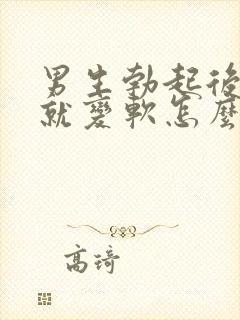 男生勃起後
就變軟怎麼
高琦